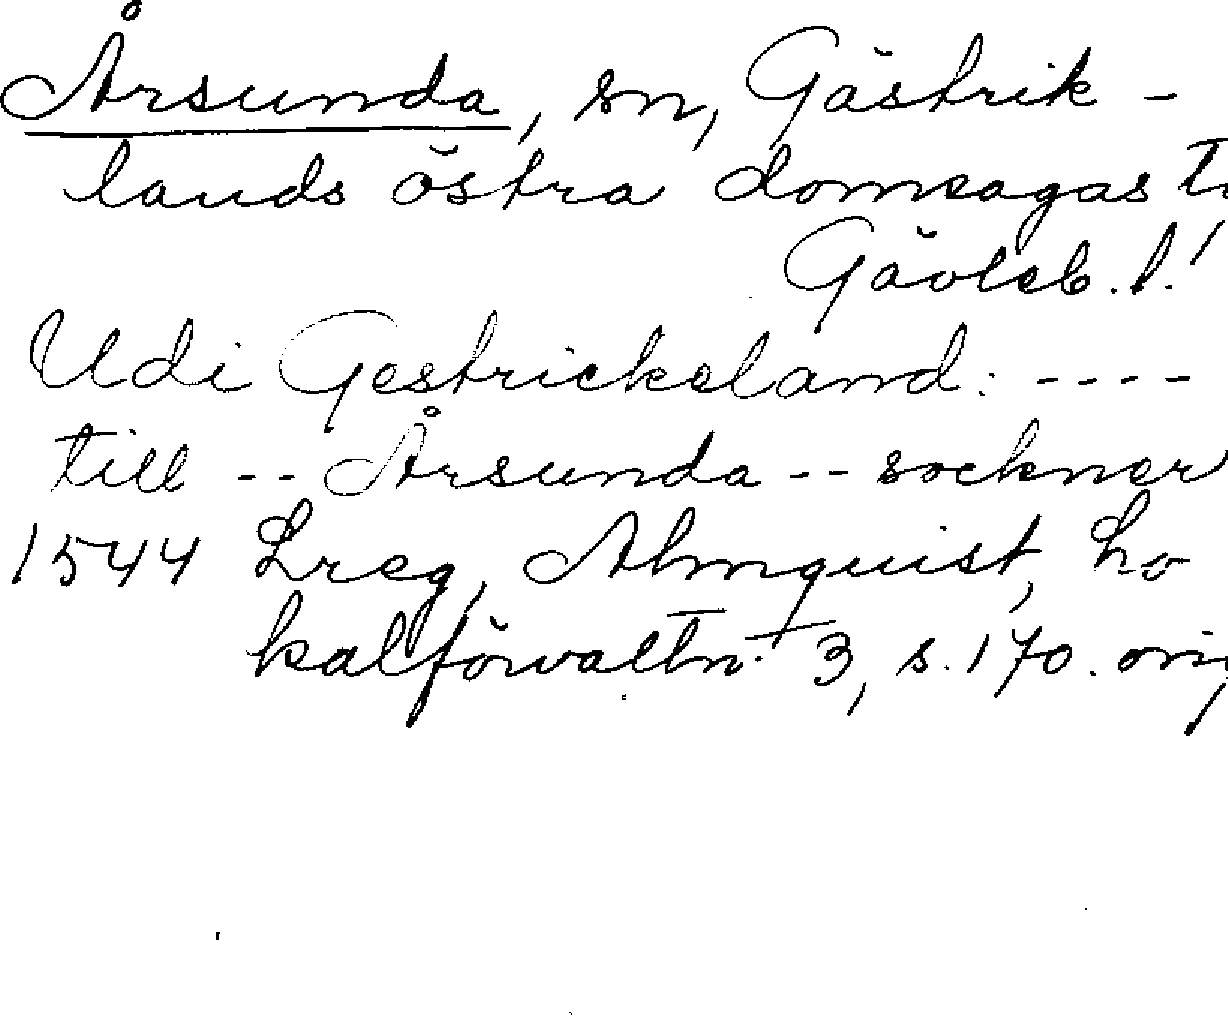 Årsunda, sn, Gästrik-
lands östra domsagas
Gävleb. l.
Udi Gestrickeland: ----
till -- Årsunda -- sockner
1544 Lreg, Almquist, Lo
kalförvaltn. 3, s. 170.